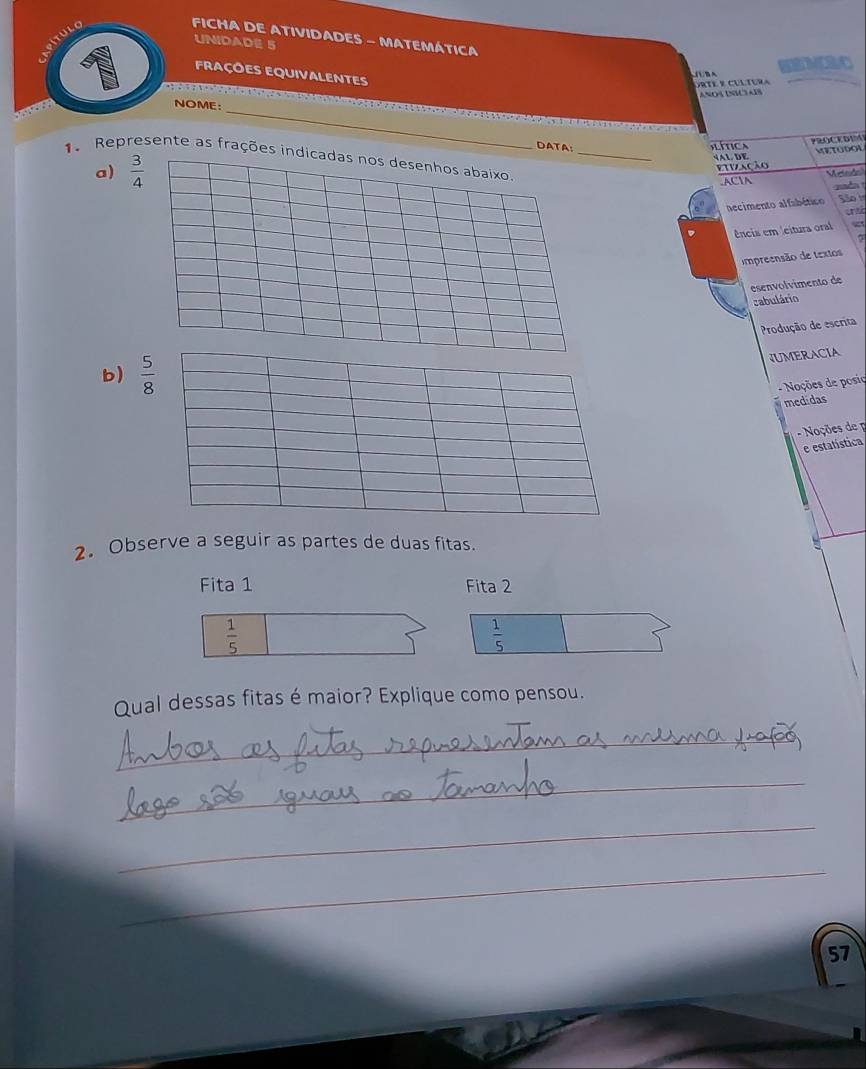 CAPÍTULO
1
FICHA DE ATIVIDADES - MATEMÁTICA
UNIDADE 5
FRAÇÕES EQUIVALENTES
NOME:
DATA:
1. Represente as frações indicadas nos desenhos abaixo.
a) 3/4
b) 5/8
2. Observe a seguir as partes de duas fitas.
Fita 1 Fita 2
1/5 1/5
Qual dessas fitas é maior? Explique como pensou.
Ambos as fitas representam as mesma fração,
lago são iguais ao tamanho
57
JUBA
ORTE E CULTURA
ANOS INICIAIS
LÍTICA
NAL DE
ETIZAÇÃO
PROCEDIM
METODOL
ACIA
necimento alfabético
ência em leitura oral
mpreensão de textos
esenvolvimento de
cabulário
Produção de escrita
NUMERACIA
- Noções de posiç
medidas
- Noções de p
e estatística